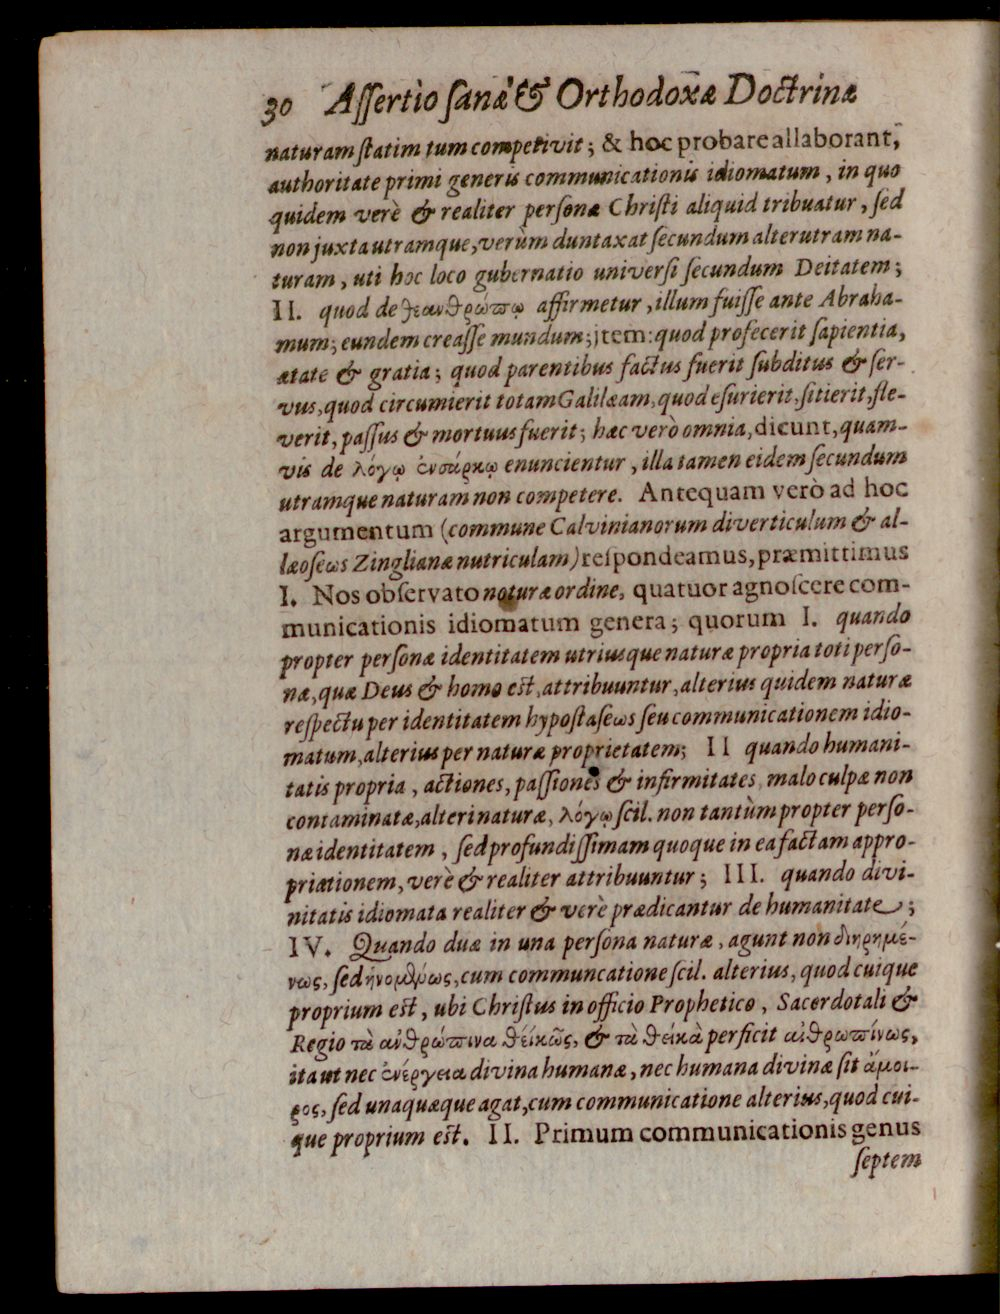 30 Assertio sanæ & Orthodoxæ Doctrinæ
naturam statim tum competivit; & hoc probare allaborant,
authoritate primi generis communicationis idiomatum, in quo
quidem verè & realiter personæ Christi aliquid tribuatur, sed
non juxta utramque, verùm duntaxat secundum alterutram na-
turam, uti hoc loco gubernatio universi secundum Deitatem;
II. quod de θεανθρώπῳ affirmetur, illum fuisse ante Abraha-
mum; eundem creasse mundum; item: quod profecerit sapientia,
ætate & gratia; quod parentibus factus fuerit subditus & ser-
vus, quod circumierit totam Galilæam, quod esurierit, sitierit, fle-
verit, passus & mortuus fuerit; hæc verò omnia, dicunt, quam-
vis de λόγῳ ἐνσάρκῳ enuncientur, illa tamen eidem secundum
utramque naturam non competere. Antequam verò ad hoc
argumentum (commune Calvinianorum diverticulum & al-
læoseωs Zinglianæ nutriculam) respondeamus, præmittimus
I. Nos observato naturæ ordine, quatuor agnoscere com-
municationis idiomatum genera; quorum I. quando
propter personæ identitatem utriusque naturæ propria toti perso-
næ, quæ Deus & homo est, attribuuntur, alterius quidem naturæ
respectu per identitatem hypostaseωs seu communicationem idio-
matum, alterius per naturæ proprietatem; II quando humani-
tatis propria, actiones, passiones & infirmitates, malo culpæ non
contaminatæ, alteri naturæ, λόγῳ scil. non tantùm propter perso-
næ identitatem, sed profundissimam quoque in ea factam appro-
priationem, verè & realiter attribuuntur; III. quando divi-
nitatis idiomata realiter & verè prædicantur de humanitate;
IV. Quando duæ in una persona naturæ, agunt non διῃρημέ-
νως, sed ἡνομένως, cum communcatione scil. alterius, quod cuique
proprium est, ubi Christus in officio Prophetico, Sacerdotali &
Regio τὰ ἀνθρώπινα θεϊκῶς, & τὰ θεϊκὰ perficit ἀνθρωπίνως,
ita ut nec ἐνέργεια divina humanæ, nec humana divinæ sit ἄμοι-
ρος, sed unaquæque agat, cum communicatione alterius, quod cui-
que proprium est. II. Primum communicationis genus
septem